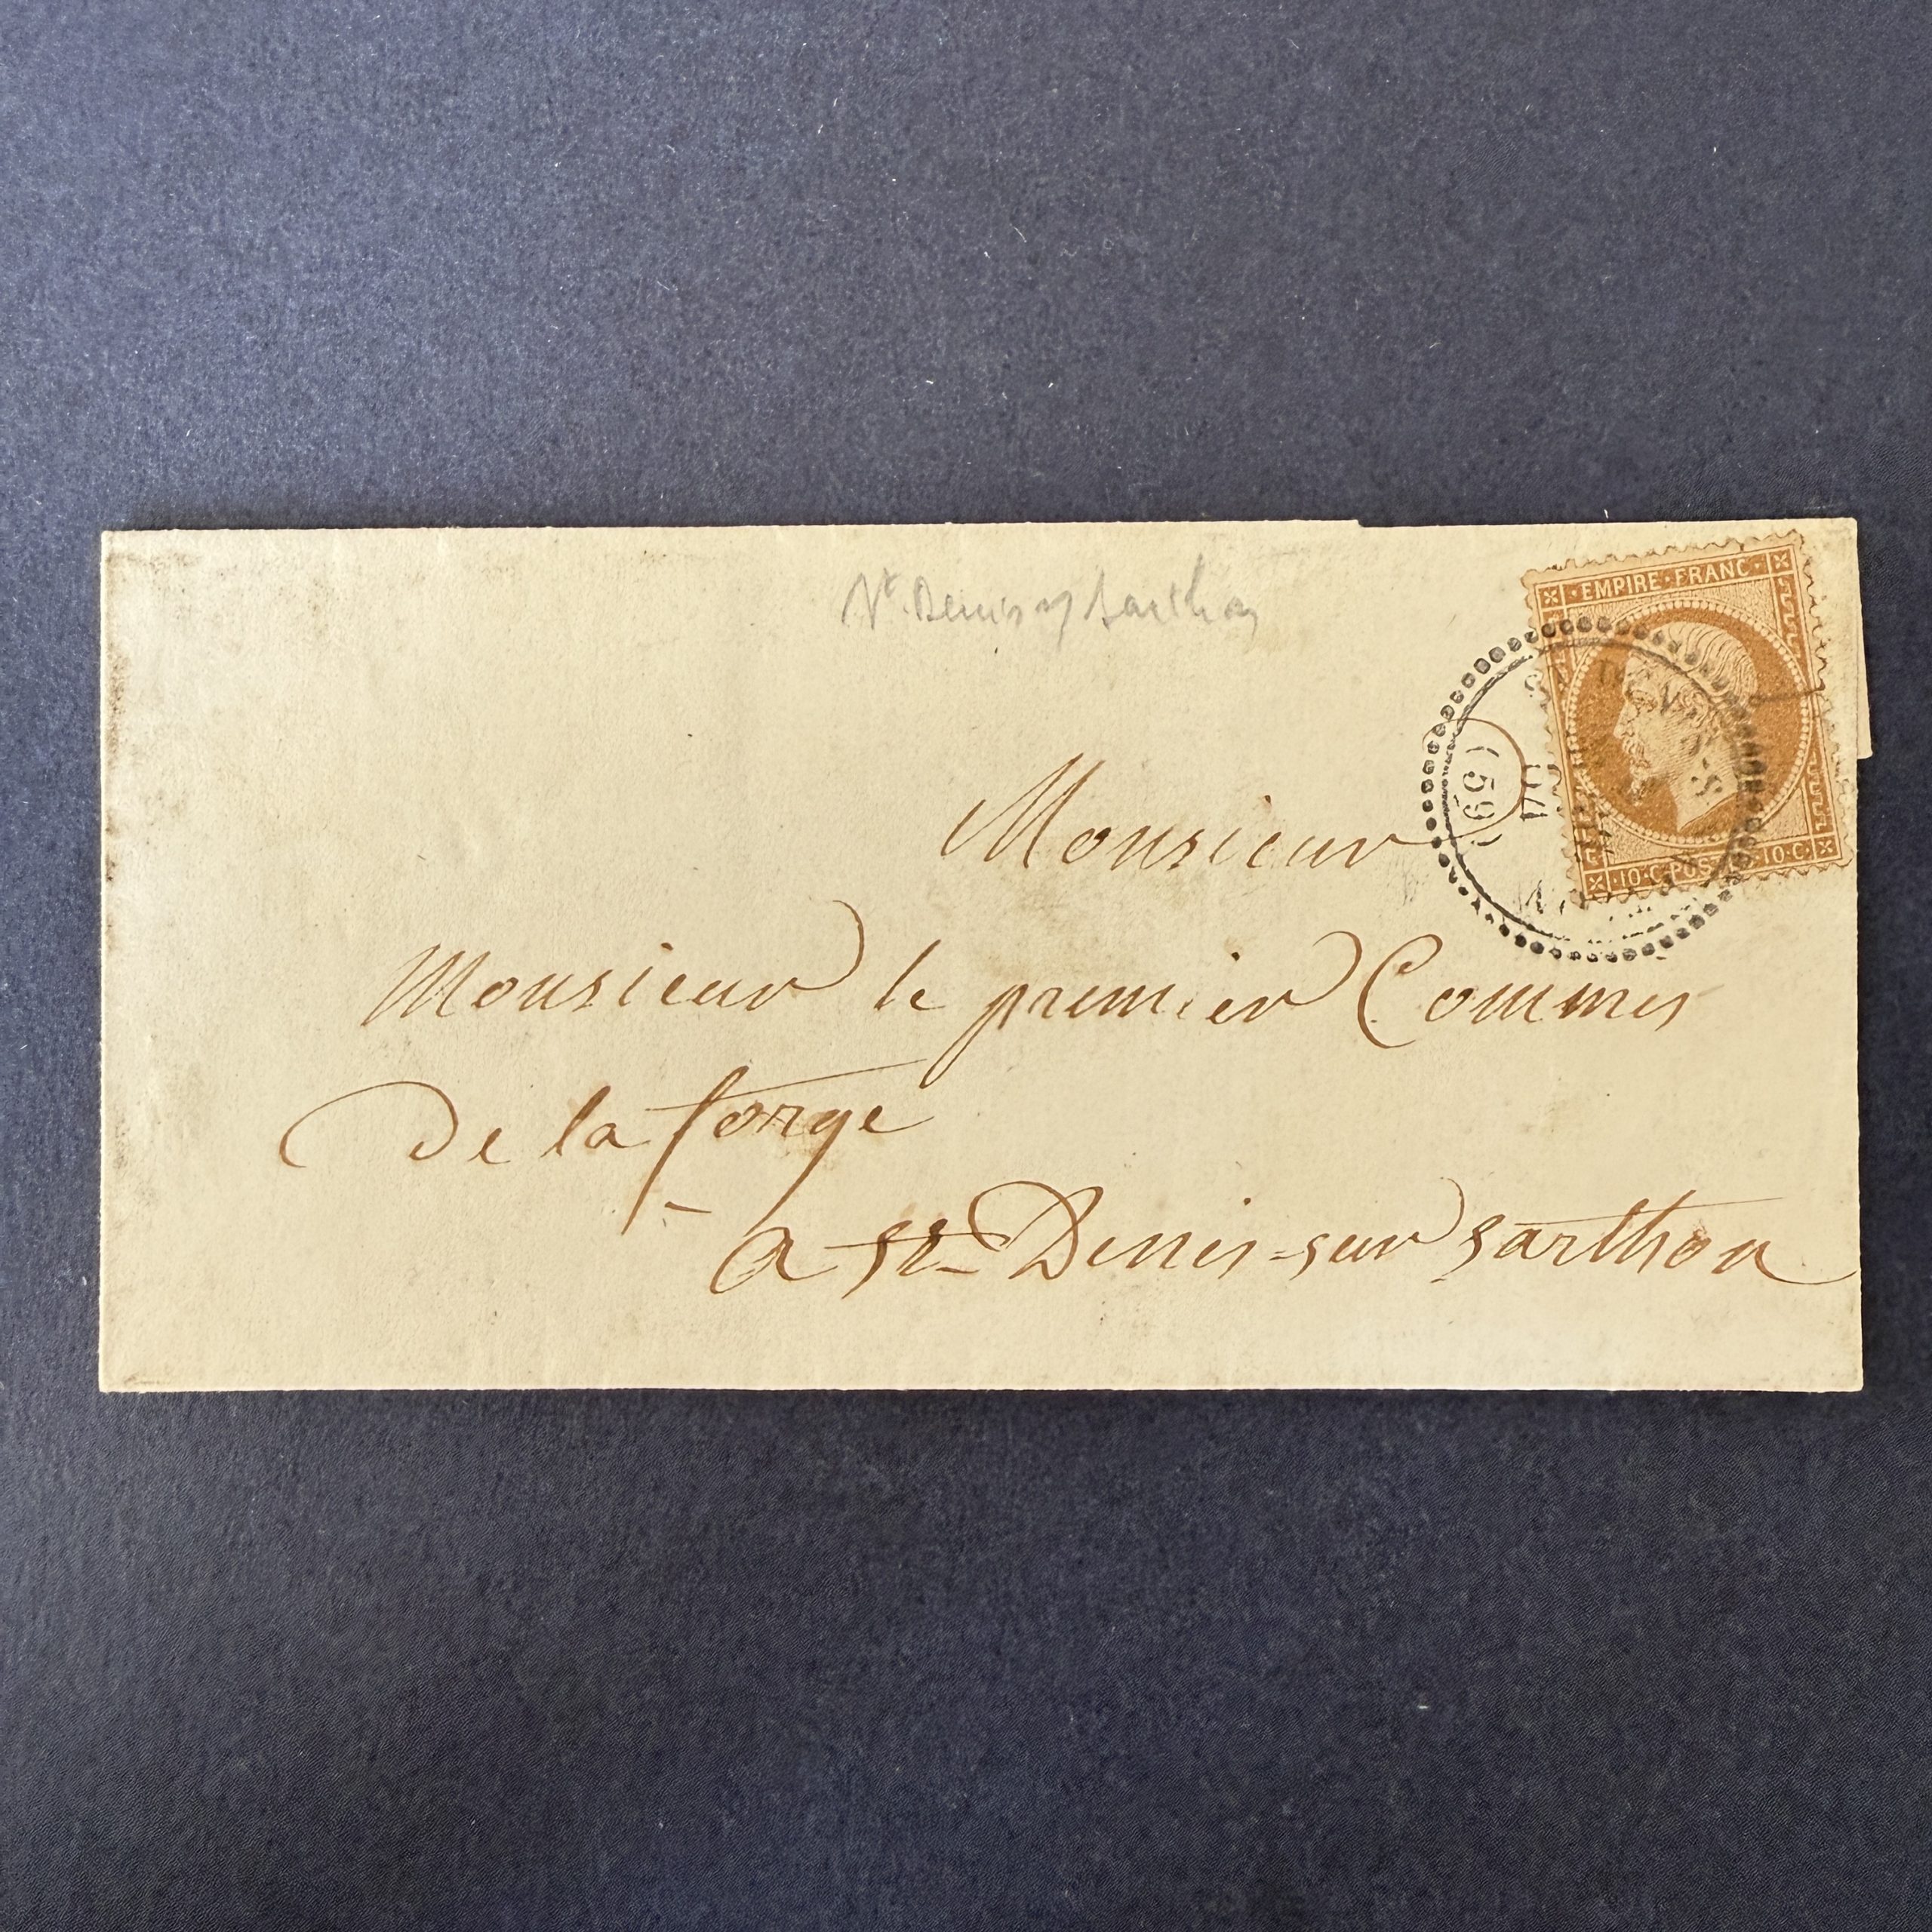 St. Denis s/ Sarthon
EMPIRE·FRANC·
ST DENIS-S-
(59)
10·C·POSTES·10·C·
Monsieur
Monsieur le premier Commis
De la forge
a St- Denis-sur sarthon